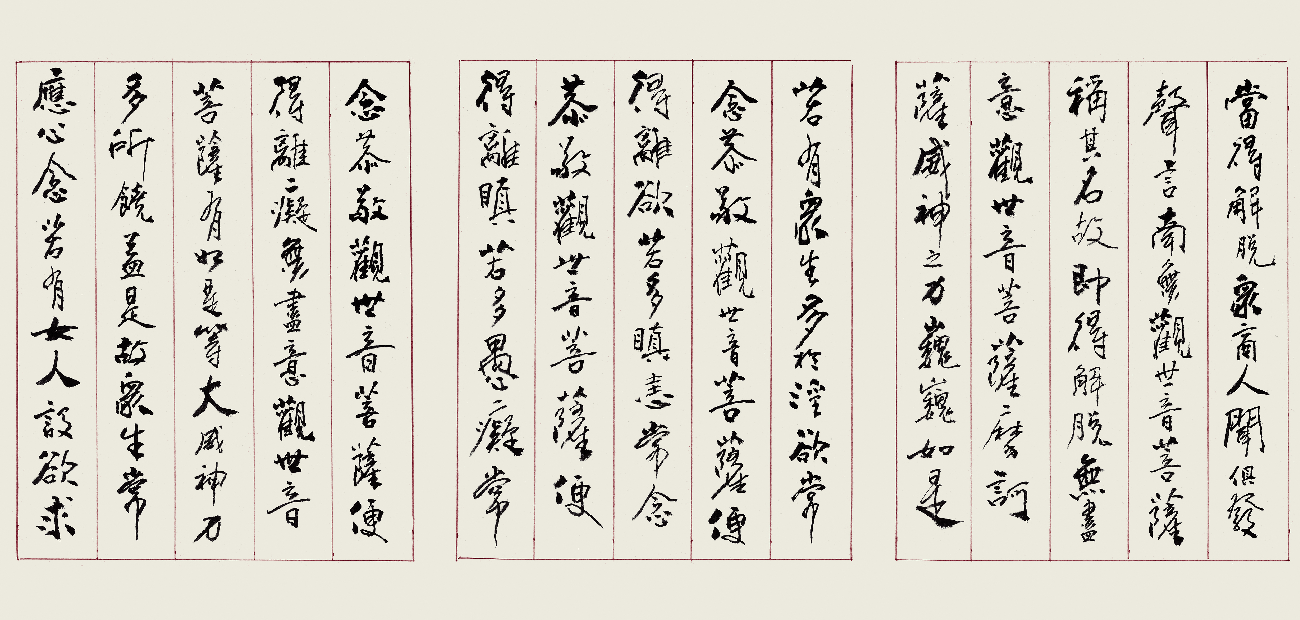 當得解脫眾商人聞俱發
聲言南無觀世音菩薩
稱其名故即得解脫無盡
意觀世音菩薩摩訶
薩威神之力巍巍如是
若有眾生多於淫欲常
念恭敬觀世音菩薩便
得離欲若多瞋恚常念
恭敬觀世音菩薩便
得離瞋若多愚癡常
念恭敬觀世音菩薩便
得離癡無盡意觀世音
菩薩有如是等大威神力
多所饒益是故眾生常
應心念若有女人設欲求